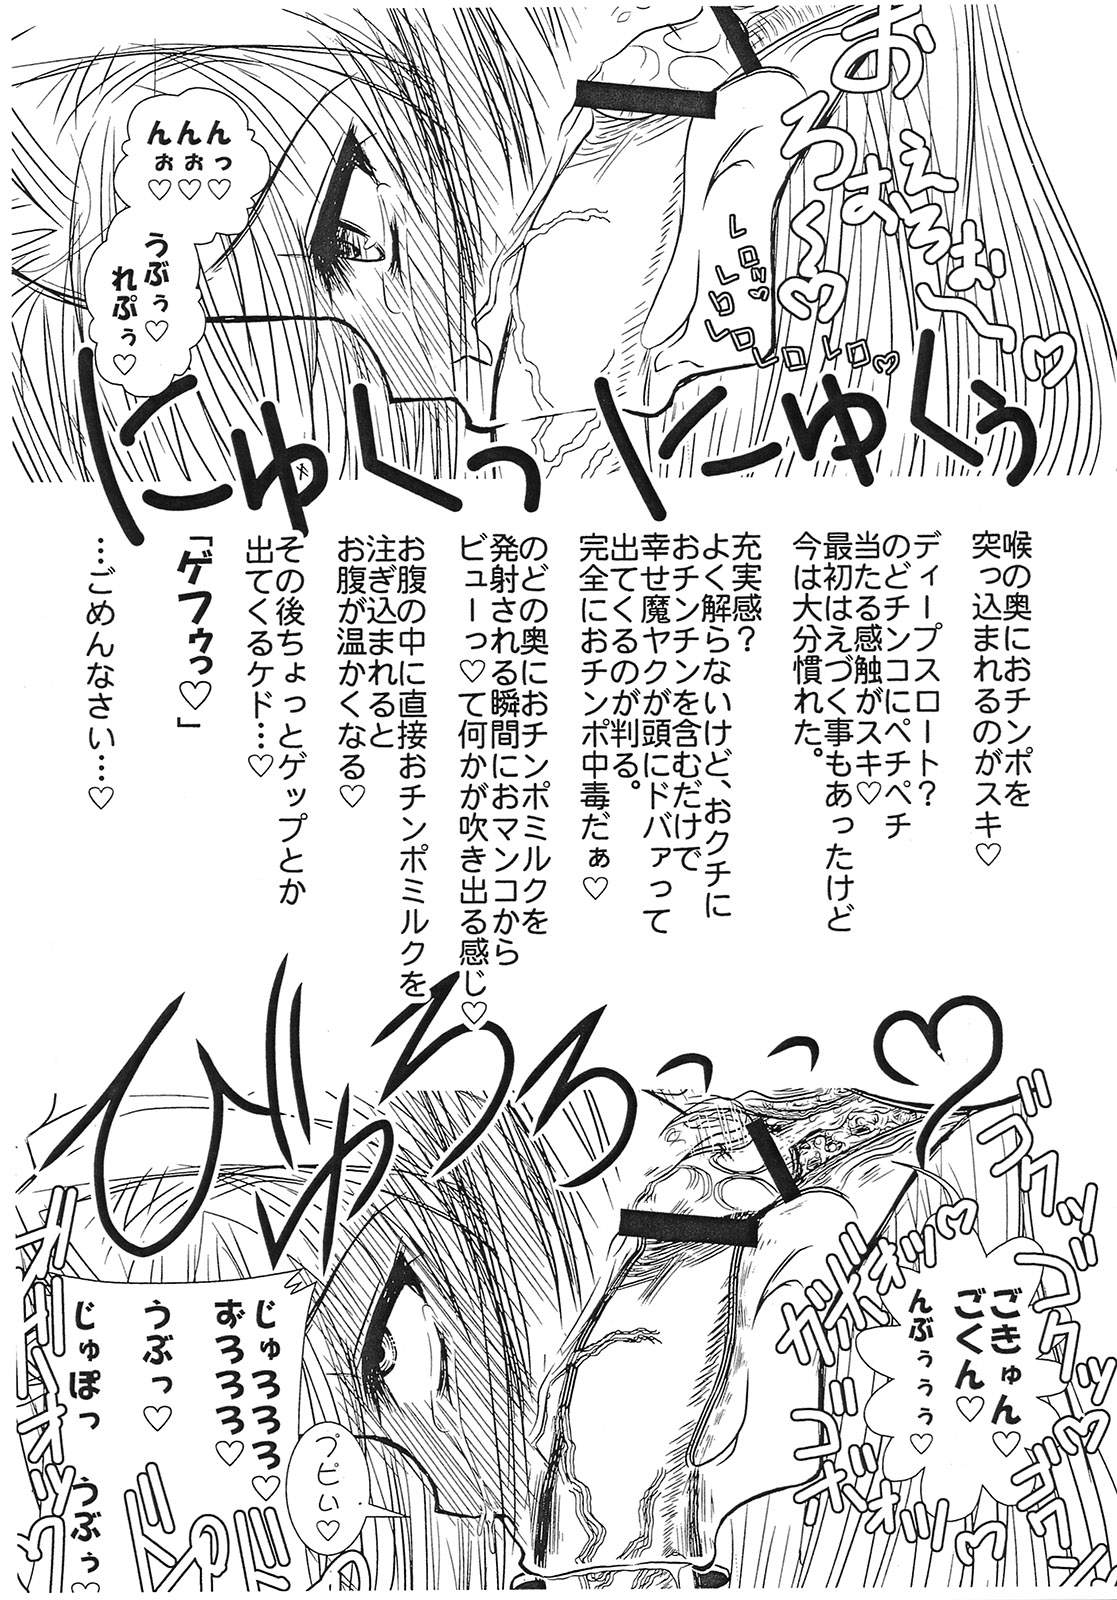 おえろぉ〜♡
ろぉぉ〜〜♡
レロッ♡
レロレロ
レロレロ♡
んっ♡
んぉ♡
んぉ♡
うぶぅ♡
れぷぅ♡
にゅくっにゅくぅ
喉の奥におチンポを
突っ込まれるのがスキ♡
ディープスロート?
のどチンコにペチペチ
当たる感触がスキ♡
最初はえづく事もあったけど
今は大分慣れた。
充実感?
よく解らないけど、おクチに
おチンチンを含むだけで
幸せ魔ヤクが頭にドバァって
出てくるのが判る。
完全におチンポ中毒だぁ♡
のどの奥におチンポミルクを
発射される瞬間におマンコから
ビューっ♡て何かが吹き出る感じ♡
お腹の中に直接おチンポミルクを
注ぎ込まれると
お腹が温かくなる♡
その後ちょっとゲップとか
出てくるケド…♡
「ゲフゥっ♡」
…ごめんなさい…♡
びゅろろっっ♡
ゴクッ
ゴクゴクッ♡
ごきゅん♡
ごくん♡
んぶぅぅぅ♡
じゅろろろ♡
おろろろろ♡
うぶっ♡
じゅぽっ
うぶぅ♡
プピぃ♡